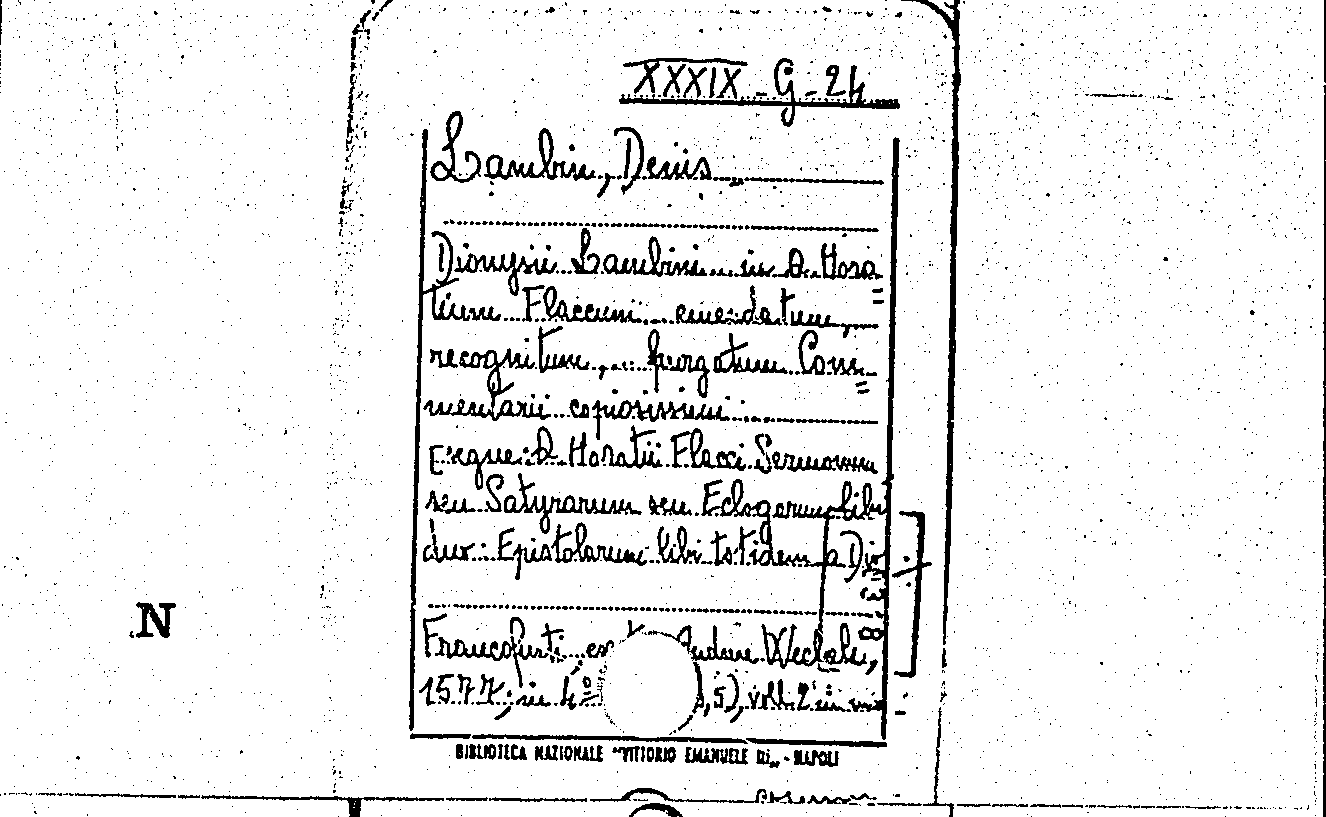 XXXIX - G - 24
Lambin, Denis
Dionysii Lambini in Q. Hora=
tium Flaccum emendatum,
recognitum, purgatum Com=
mentarii copiosissimi
segue: Q. Horatii Flacci Sermonum
seu Satyrarum seu Eclogarum libri
duo: Epistolarum libri totidem a Di
Francofurti, ex Wecheli,
1577; in 4º ,5), voll. 2 in
N
BIBLIOTECA NAZIONALE "VITTORIO EMANUELE III„ - NAPOLI